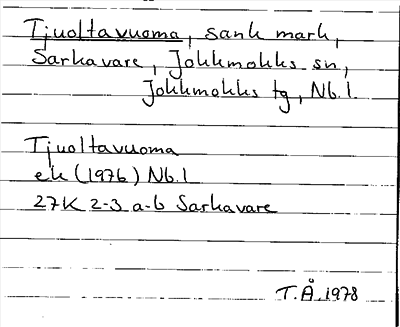 Tjuoltavuoma, sank mark,
Sarkavare, Jokkmokks sn,
Jokkmokks tg, Nb.l.
Tjuoltavuoma
ek (1976) Nb.l
27K 2-3 a-b Sarkavare
T.Å. 1978